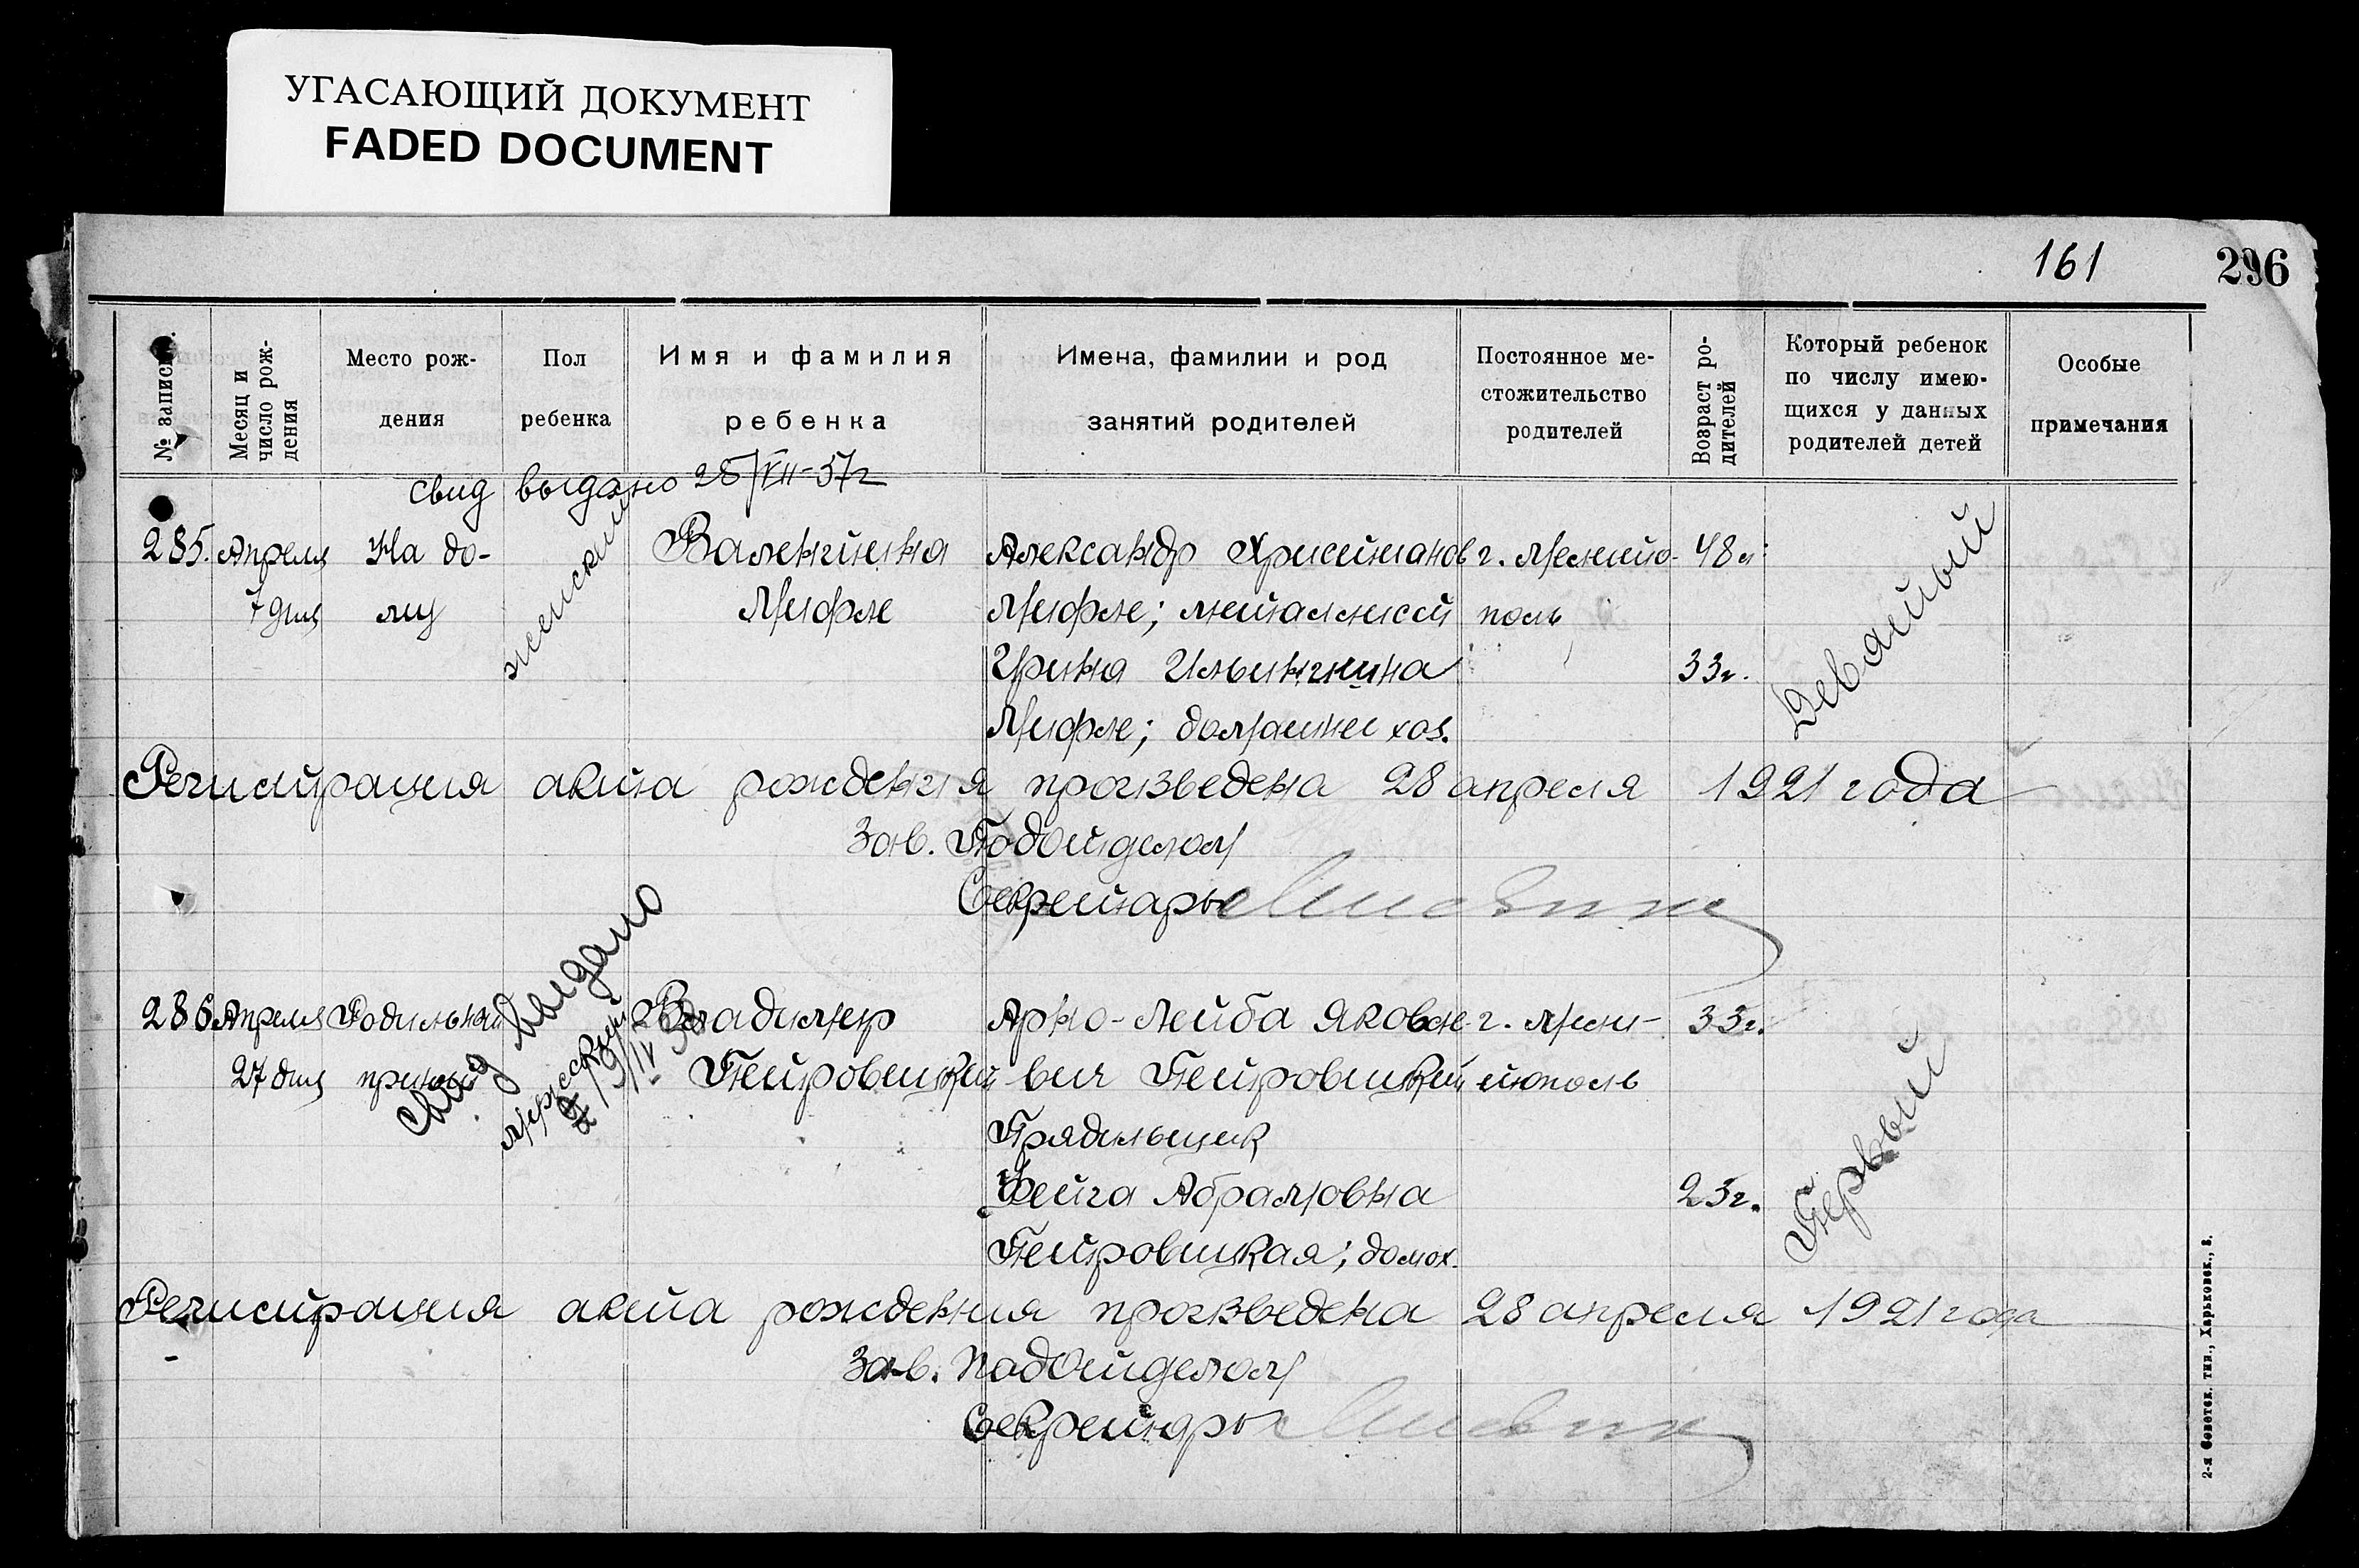 УГАСАЮЩИЙ ДОКУМЕНТ
FADED DOCUMENT
161
296
№ записи.
Месяц и число рождения
Место рож-
дения
Пол
ребенка
Имя и фамилия
ребенка
Имена, фамилии и род
занятий родителей
Постоянное ме-
стожительство
родителей
Возраст ро-
дителей
Который ребенок
по числу имею-
щихся у данных
родителей детей
Особые
примечания
свид выдано 28/VII-57г
285. Апреля На до- женский Валентина Александр Христианов г. Мелито- 48 л. Девятый
7 дня му Мифле Мифле; металлист поль
Ирина Ильинична 33г.
Мифле; домашнее хоз.
Регистрация акта рождения произведена 28 апреля 1921 года
Зав. Подотделом
Секретарь
свид выдано
286 Апреля Родильный мужской Владимир Арно-Лейба Яковле- г. Мели- 33г. Первый
27 дня приют Петровицкий вич Петровицкий тополь
Прядильщик
Фейга Абрамовна 23г.
Петровицкая; домох.
Регистрация акта рождения произведена 28 апреля 1921 года
Зав. Подотделом
Секретарь
2-я Советск. тип., Харьковск., 8.